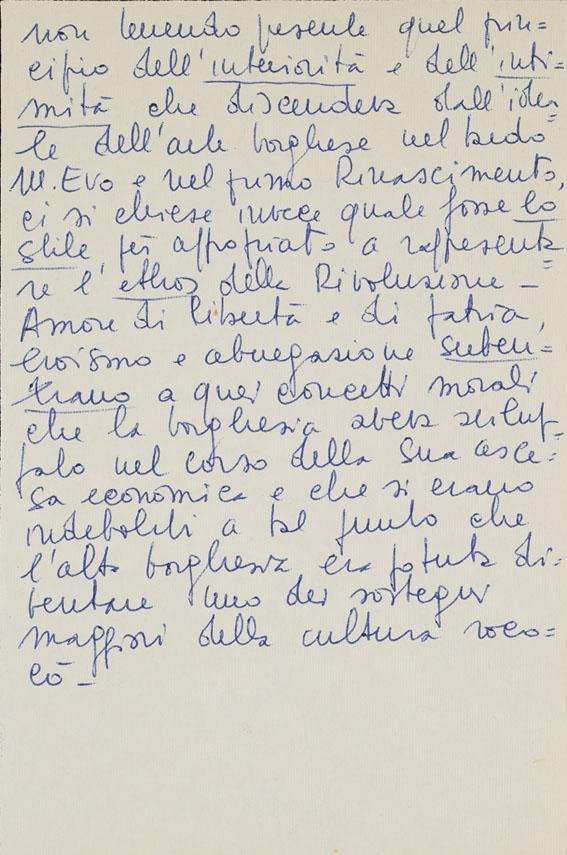 non tenendo presente quel prin=
cipio dell'interiorità e dell'inti=
mità che discendeva dall'idea
le dell'arte borghese nel tardo=
M. Evo e nel primo Rinascimento,
ci si chiese invece quale fosse lo
stile più appropriato a rappresenta=
re l'ethos della Rivoluzione -
Amore di libertà e di patria,
eroismo e abnegazione suben=
trano a quei concetti morali
che la borghesia aveva svilup-
pato nel corso della sua asce=
sa economica e che si erano
indeboliti a tal punto che
l'alta borghesia era potuta di=
ventare uno dei sostegni
maggiori della cultura roco=
cò -